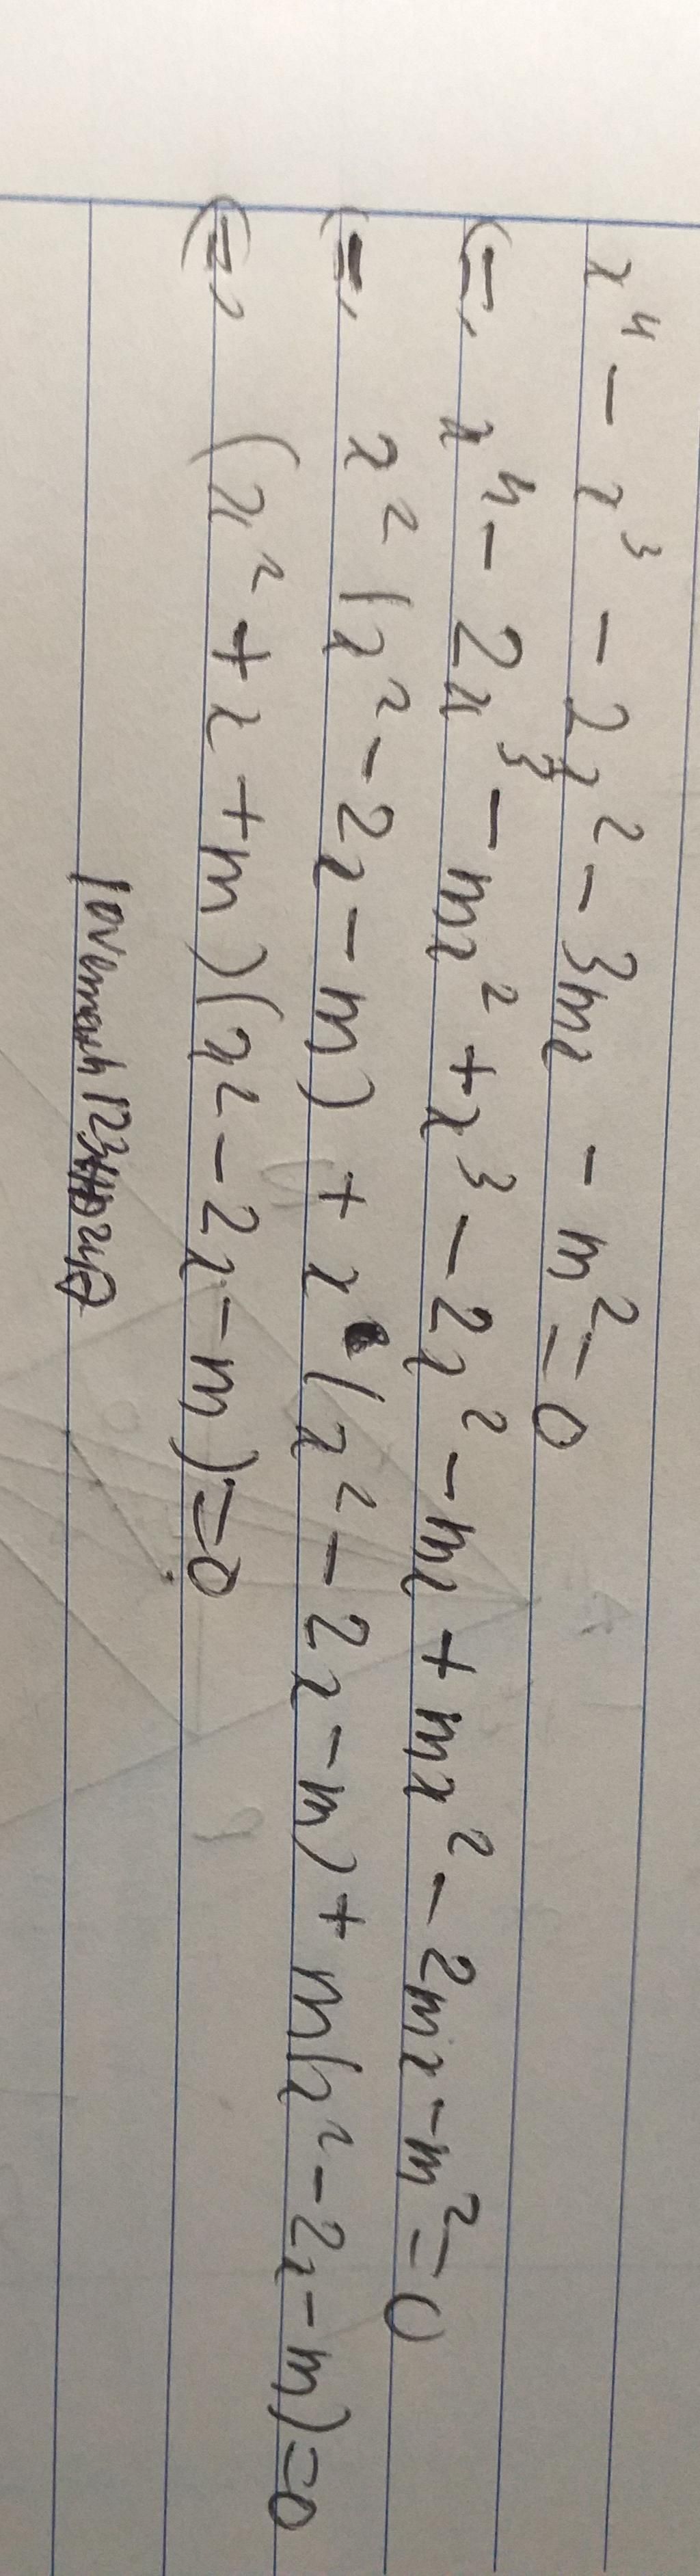 x⁴ - x³ - 2x² - 3mx - m² = 0
(=) x⁴ - 2x³ - mx² + x³ - 2x² - mx + mx² - 2mx - m² = 0
(=) x² (x² - 2x - m) + x (x² - 2x - m) + m(x² - 2x - m) = 0
(=) (x² + x + m)(x² - 2x - m) = 0